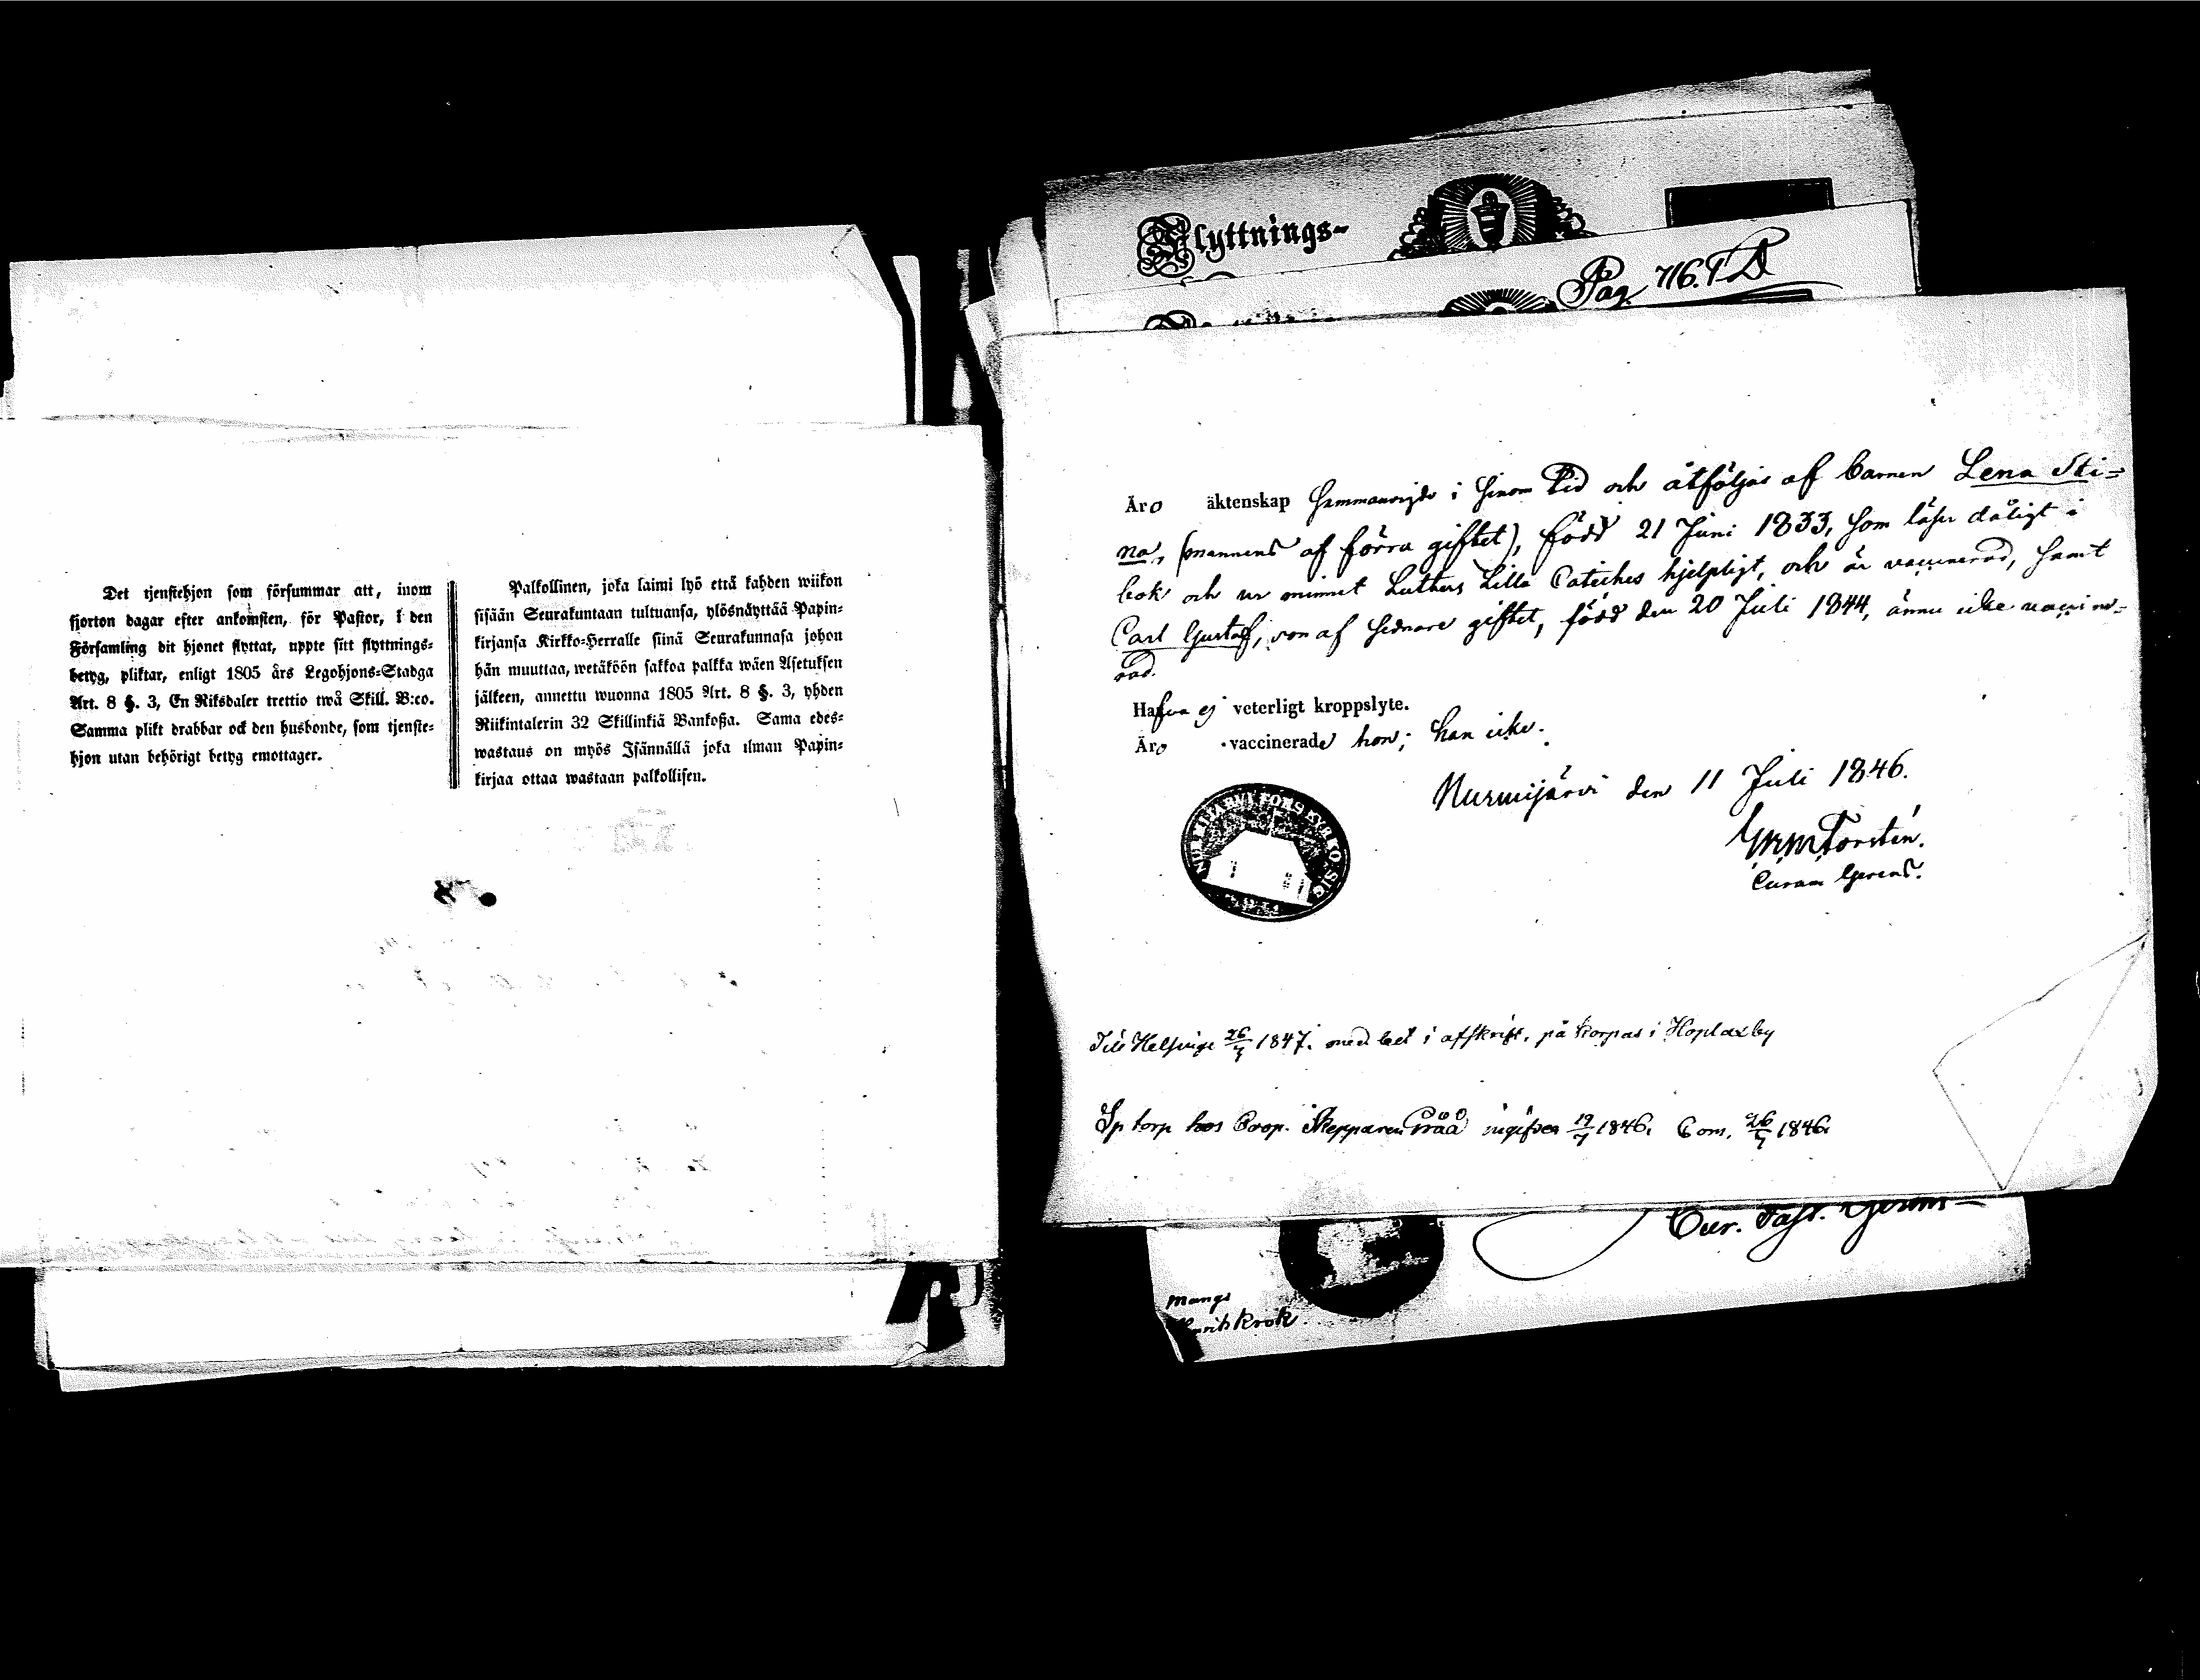 Det tjenstehjon som försummar att, inom
fjorton dagar efter ankomsten, för Pastor, i den
Församling dit hjonet flyttat, uppte sitt flyttnings-
betyg, pliktar, enligt 1805 års Legohjons-Stadga
Art. 8 §. 3, En Riksdaler trettio twå Skill. B:co.
Samma plikt drabbar ock den husbonde, som tjenste-
hjon utan behörigt betyg emottager.
Palkollinen, joka laimi lyö että kahden wiikon
sisään Seurakuntaan tultuansa, ylösnäyttää Papin-
kirjansa Kirkko-Herralle siinä Seurakunnasa johon
hän muuttaa, wetäköön sakkoa palkka wäen Asetuksen
jälkeen, annettu wuonna 1805 Art. 8 §. 3, yhden
Riikintalerin 32 Skillinkiä Bankoßa. Sama edes-
wastaus on myös Isännällä joka ilman Papin-
kirjaa ottaa wastaan palkollisen.
Flyttnings-
Pag. 716. T.D
Äro äktenskap sammanvigde i sinom tid och åtföljas af barnen Lena Sti-
na, (mannens af förra giftet), född 21 Juni 1833, som läser dåligt i
bok och ur minnet Luthers Lilla Cateches hjelpligt, och är vaccinerad, samt
Carl Gustaf, son af sednare giftet, född den 20 Juli 1844, ännu icke vaccine-
rad.
Hafva ej veterligt kroppslyte.
Äro vaccinerade hon; han icke.
Nurmijärvi den 11 Juli 1846.
Forstén.
Curam Gerens.
Till Helsinge 26/7 1847. med bet i afskrift, på Korpas i Hoplaxby
Sp torp hos Coop. Skepparen ingifven 19/7 1846. Com. 26/7 1846.
Cur. Past. Gerens
Mangs
krok